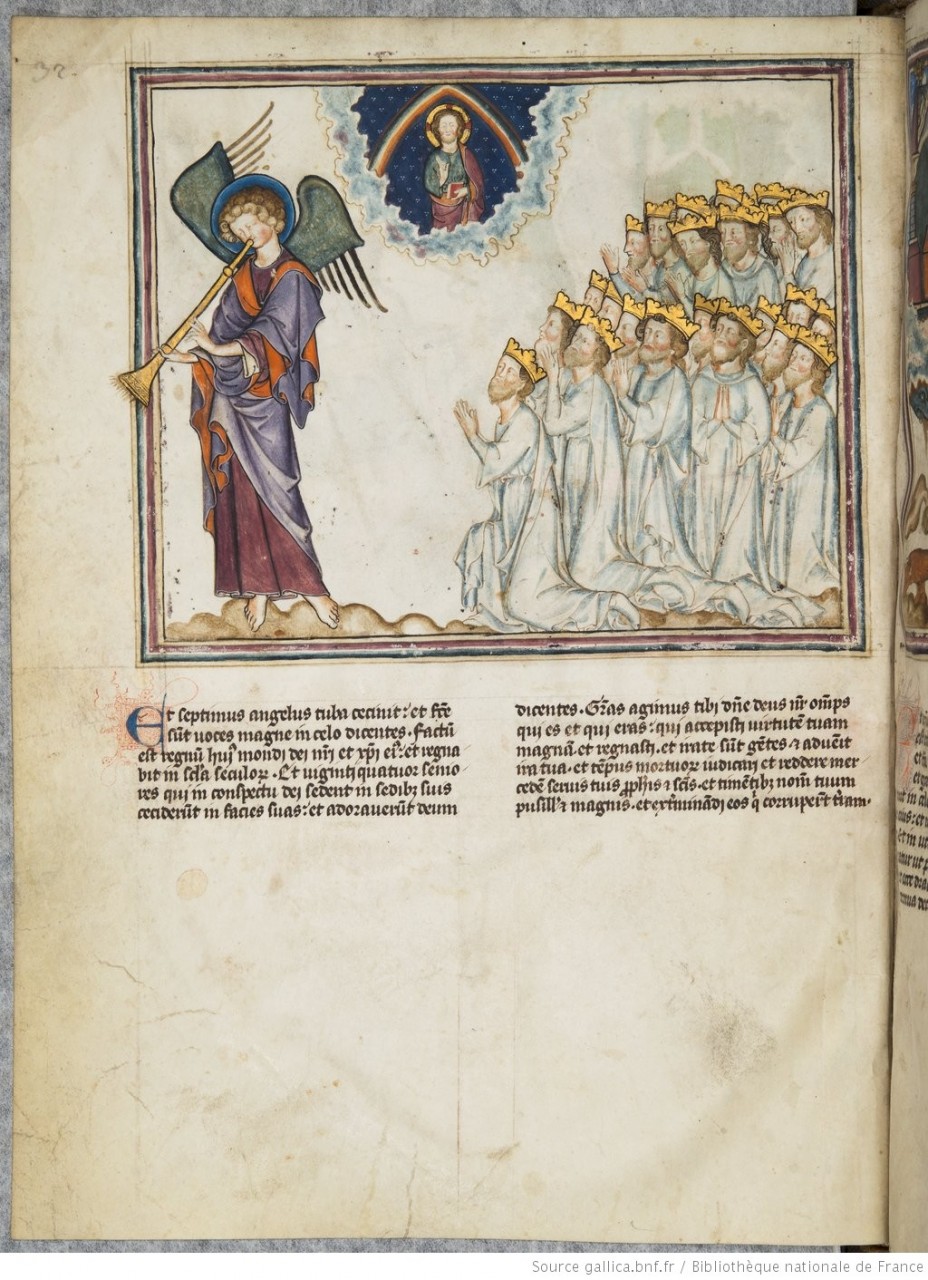 32
Et septimus angelus tuba cecinit: et fc̄e
sūt voces magne in celo dicentes. Factū
est regnū huiꝰ mondi dei nr̄i et xp̄i eiꝰ: et regna
bit in scl̄a seculoꝝ. Et viginti quatuor senio
res qui in conspectu dei sedent in sedibꝫ suis
ceciderūt in facies suas: et adoraverūt deum
dicentes. Gr̄as agimus tibi dn̄e deus nr̄ om̄ips
qui es et qui eras: qui accepisti virtutē tuam
magnā et regnasti. et irate sūt gētes ⁊ advēit
ira tua. et tēpus mortuoꝝ iudicari et reddere mer
cedē servis tuis ꝓph̄is ⁊ sc̄is. et timētibꝫ nom̄ tuum
pusill̕ ⁊ magnis. et ext̓minādi eos q̇ corruper̄t t̓ram.
Source gallica.bnf.fr / Bibliothèque nationale de France